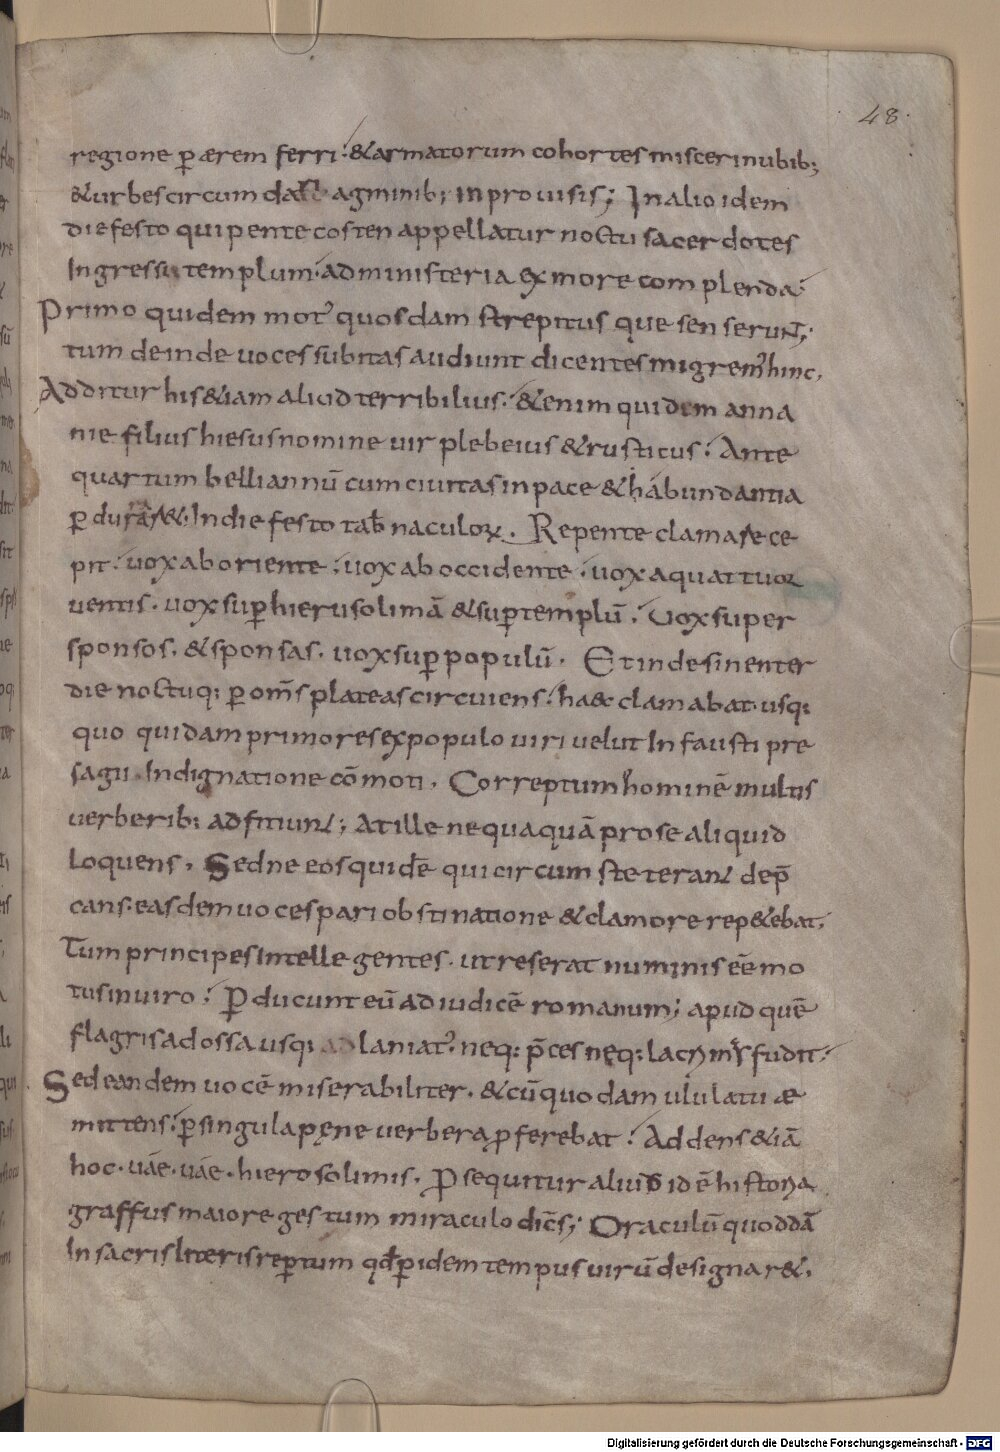 48.
regione ꝑ ærem ferri. & armatorum cohortes misceri nubib;
& urbes circum da agminib; inprouisis; In alio idem
die festo qui pentecosten appellatur noctu sacerdotes
Ingressi templum. ad ministeria ex more complenda.
Primo quidem mot᾽ quosdam strepitus que senserunt;
tum deinde uoces subitas audiunt dicentes migrem᾽ hinc.
Additur his & iam aliud terribilius. & enim quidem anna
nie filius hiesus nomine uir plebeius & rusticus. Ante
quartum belli annū cum ciuitas in pace & habundantia
ꝑdurar&. In die festo tab̄naculoꝝ. Repente clamare ce
pit. uox ab oriente. uox ab occidente. uox a quattuoꝝ
uentis. uox suꝑ hierusolimā & suꝑ templū. Uox super
sponsos. & sponsas. uox suꝑ populū. Et indesinenter
die noctuq; ꝑ om̄s plateas circuiens. haec clamabat. usq;
quo quidam primores ex populo uiri uelut Infausti pre
sagii Indignatione cōmoti. Correptum hominē multis
uerberib; adfitiunt; At ille nequaquā pro se aliquid
loquens. Sed ne eos quidē qui circumsteterant dep̄
cans. easdem uoces pari obstinatione & clamore rep&ebat.
Tum principes Intellegentes. ut res erat numinis eē mo
tus in uiro. Ꝑducunt eū ad iudicē romanum; apud quē
flagris ad ossa usq; ad laniat᾽. neq; p̄ces neq; lacrimas fudit.
Sed eandem uocē miserabiliter. & cū quodam ululatu æ
mittens. ꝑ singula pęne uerbera ꝓferebat. Addens & iā
hoc. uáe. uáe. hierosolimis. Ꝓsequitur aliud idē historia
graffus maiore gestum miraculo dicēs; Oraculū quoddā
In sacris literis reꝑtum qđ ꝑ idem tempus uirū designar&.
Digitalisierung gefördert durch die Deutsche Forschungsgemeinschaft - DFG